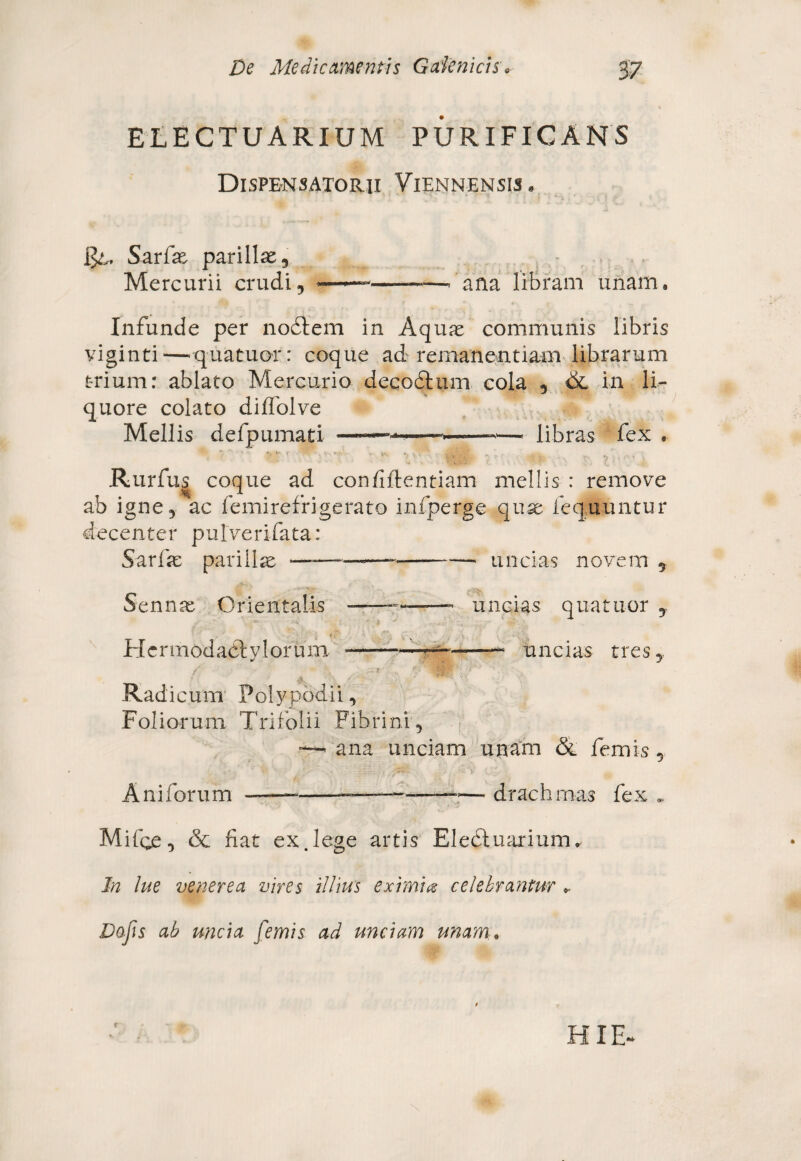 De Medicamentis Galenicis. 37
ELECTUARIUM PURIFICANS
DISPENSATORII VIENNENSIS.
℞. Sarſæ parillæ,
Mercurii crudi, ———— ana libram unam.
Infunde per noctem in Aquæ communis libris
viginti—quatuor: coque ad remanentiam librarum
trium: ablato Mercurio decoctum cola, & in li-
quore colato diſſolve
Mellis deſpumati ———— libras ſex.
Rurſus coque ad conſiſtentiam mellis: remove
ab igne, ac ſemirefrigerato inſperge quæ ſequuntur
decenter pulveriſata:
Sarſæ parillæ ———— uncias novem,
Sennæ Orientalis ———— uncias quatuor,
Hermodactylorum ———— uncias tres,
Radicum Polypodii,
Foliorum Trifolii Fibrini,
— ana unciam unam & ſemis,
Aniſorum ———— drachmas ſex.
Miſce, & fiat ex lege artis Electuarium.
In lue venerea vires illius eximiæ celebrantur.
Doſis ab uncia ſemis ad unciam unam.
HIE-